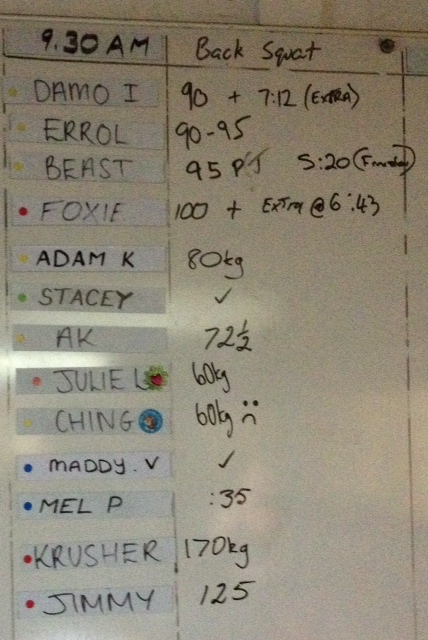 9.30 AM Back Squat
DAMO I 90 + 7:12 (EXTRA)
ERROL 90-95
BEAST 95 5:20
FOXIE 100 + EXTRA @ 6:43
ADAM K 80kg
STACEY ✓
AK 72½
JULIE L 60kg
CHING 60kg
MADDY.V ✓
MEL P :35
KRUSHER 170kg
JIMMY 125